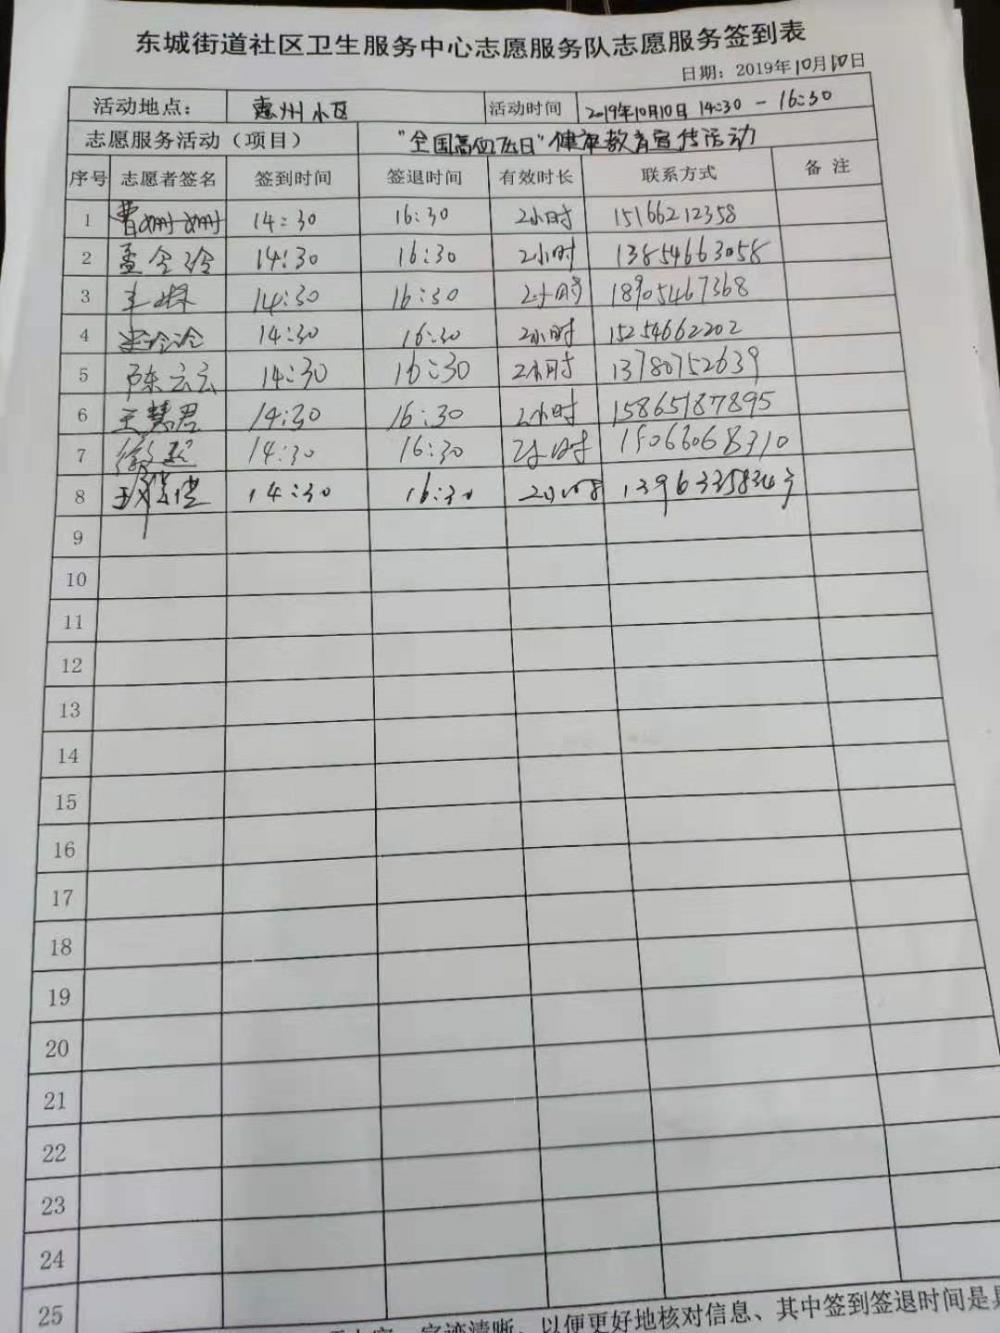 东城街道社区卫生服务中心志愿服务队志愿服务签到表
日期：2019年10月10日
活动地点： 惠州小区 活动时间 2019年10月10日 14:30 - 16:30
志愿服务活动（项目） “全国高血压日”健康教育宣传活动
序号 志愿者签名 签到时间 签退时间 有效时长 联系方式 备注
1 曹姗姗 14:30 16:30 2小时 15166212358
2 孟令玲 14:30 16:30 2小时 13854663058
3 14:30 16:30 2小时 18905467368
4 14:30 16:30 2小时 15254662202
5 陈云云 14:30 16:30 2小时 13780752639
6 王慧君 14:30 16:30 2小时 15865187895
7 徐 14:30 16:30 2小时 15066068310
8 14:30 16:30 2小时
9
10
11
12
13
14
15
16
17
18
19
20
21
22
23
24
25
字迹清晰，以便更好地核对信息、其中签到签退时间是